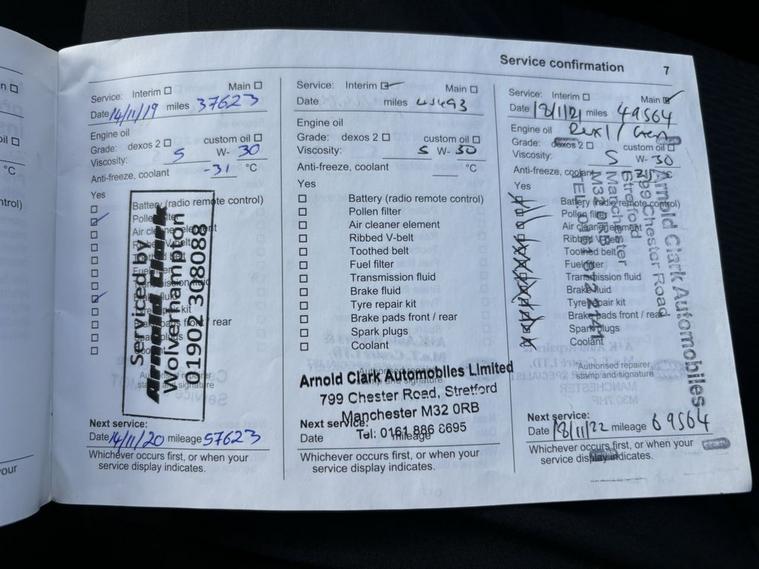 Service confirmation 7
Service: Interim ☐ Main ☐
Date 14/11/19 miles 37623
Engine oil
Grade: dexos 2 ☐ custom oil ☐
Viscosity: 5 W- 30
Anti-freeze, coolant -31 °C
Yes
Battery (radio remote control)
Pollen
Air
Fuel
fluid
kit
front / rear
Serviced by
Arnold Clark
Wolverhampton
01902 308088
Next service:
Date 14/11/20 mileage 57623
Whichever occurs first, or when your
service display indicates.
Service: Interim ☑ Main ☐
Date miles
Engine oil
Grade: dexos 2 ☐ custom oil ☐
Viscosity: 5 W- 30
Anti-freeze, coolant °C
Yes
☐ Battery (radio remote control)
☐ Pollen filter
☐ Air cleaner element
☐ Ribbed V-belt
☐ Toothed belt
☐ Fuel filter
☐ Transmission fluid
☐ Brake fluid
☐ Tyre repair kit
☐ Brake pads front / rear
☐ Spark plugs
☐ Coolant
Arnold Clark Automobiles Limited
799 Chester Road, Stretford
Manchester M32 0RB
Tel: 0161 886 8695
Next service:
Date mileage
Whichever occurs first, or when your
service display indicates.
Service: Interim ☐ Main ☑
Date 18/11/21 miles 49564
Engine oil
Grade: dexos 2 ☐ custom oil ☐
Viscosity: 5 W- 30
Anti-freeze, coolant
Yes
Battery (radio remote control)
Pollen filter
Air cleaner element
Ribbed V-belt
Toothed belt
Fuel filter
Transmission fluid
Brake fluid
Tyre repair kit
Brake pads front / rear
Spark plugs
Coolant
Authorised repairer
stamp and signature
Arnold Clark Automobiles
799 Chester Road
Stretford
Manchester
M32 0RB
Next service:
Date 18/11/22 mileage 69564
Whichever occurs first, or when your
service display indicates.